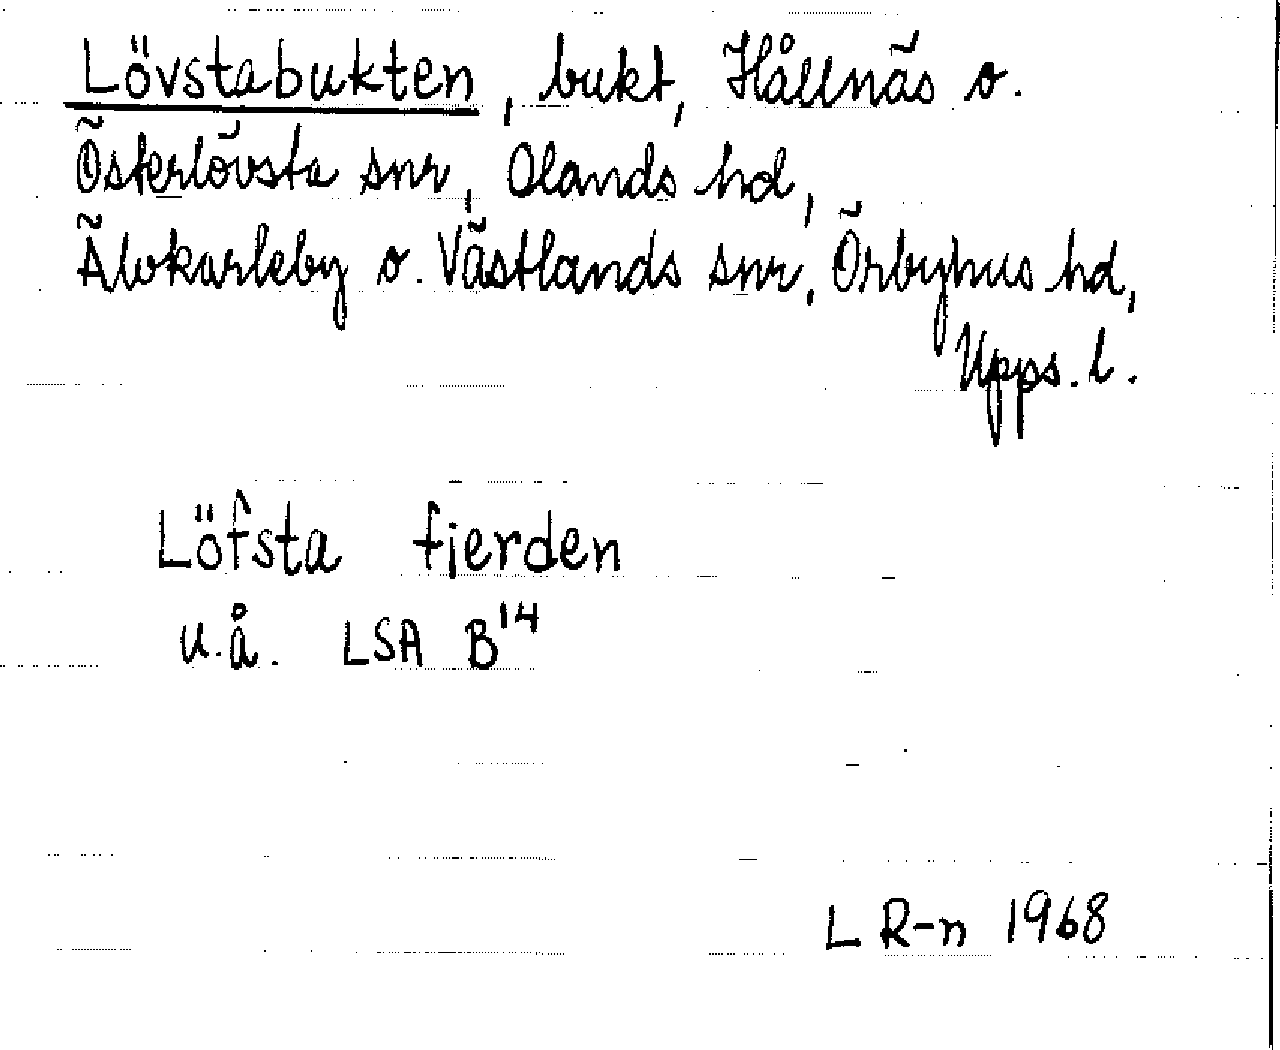 Lövstabukten, bukt, Hållnäs o.
Österlövsta snr, Olands hd,
Älvkarleby o. Västlands snr, Örbyhus hd,
Upps. l.
Löfsta fjerden
u.å. LSA B14
L R-n 1968